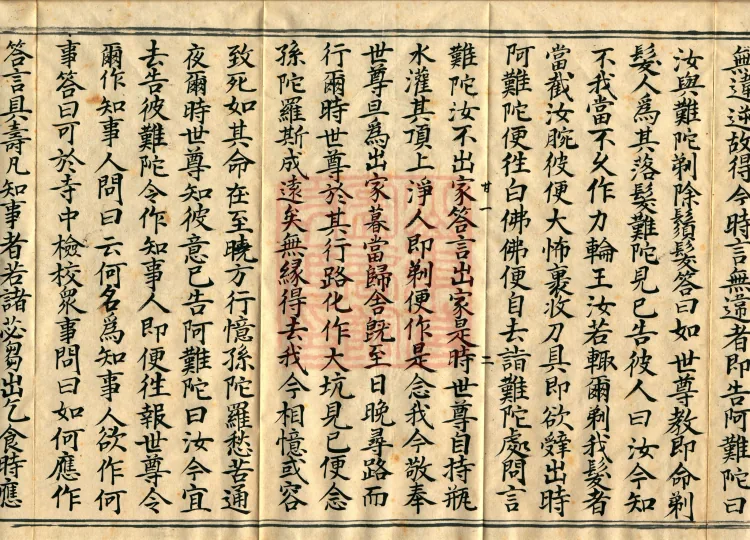 無違逆故得今時言無違者即告阿難陀曰
汝與難陀剃除鬚髮答曰如世尊教即命剃
髮人為其落髮難陀見已告彼人曰汝今知
不我當不久作力輪王汝若輒爾剃我髮者
當截汝腕彼便大怖裹收刀具即欲辭出時
阿難陀便往白佛佛便自去詣難陀處問言
難陀汝不出家答言出家是時世尊自持瓶
水灌其頂上淨人即剃便作是念我今敬奉
世尊旦為出家暮當歸舍既至日晚尋路而
行爾時世尊於其行路化作大坑見已便念
孫陀羅斯成遠矣無緣得去我今相憶或容
致死如其命在至曉方行憶孫陀羅愁苦通
夜爾時世尊知彼意已告阿難陀曰汝今宜
去告彼難陀令作知事人即便往報世尊令
爾作知事人問曰云何名為知事人欲作何
事答曰可於寺中檢校眾事問曰如何應作
答言具壽凡知事者若諸苾芻出乞食時應
甘一
二